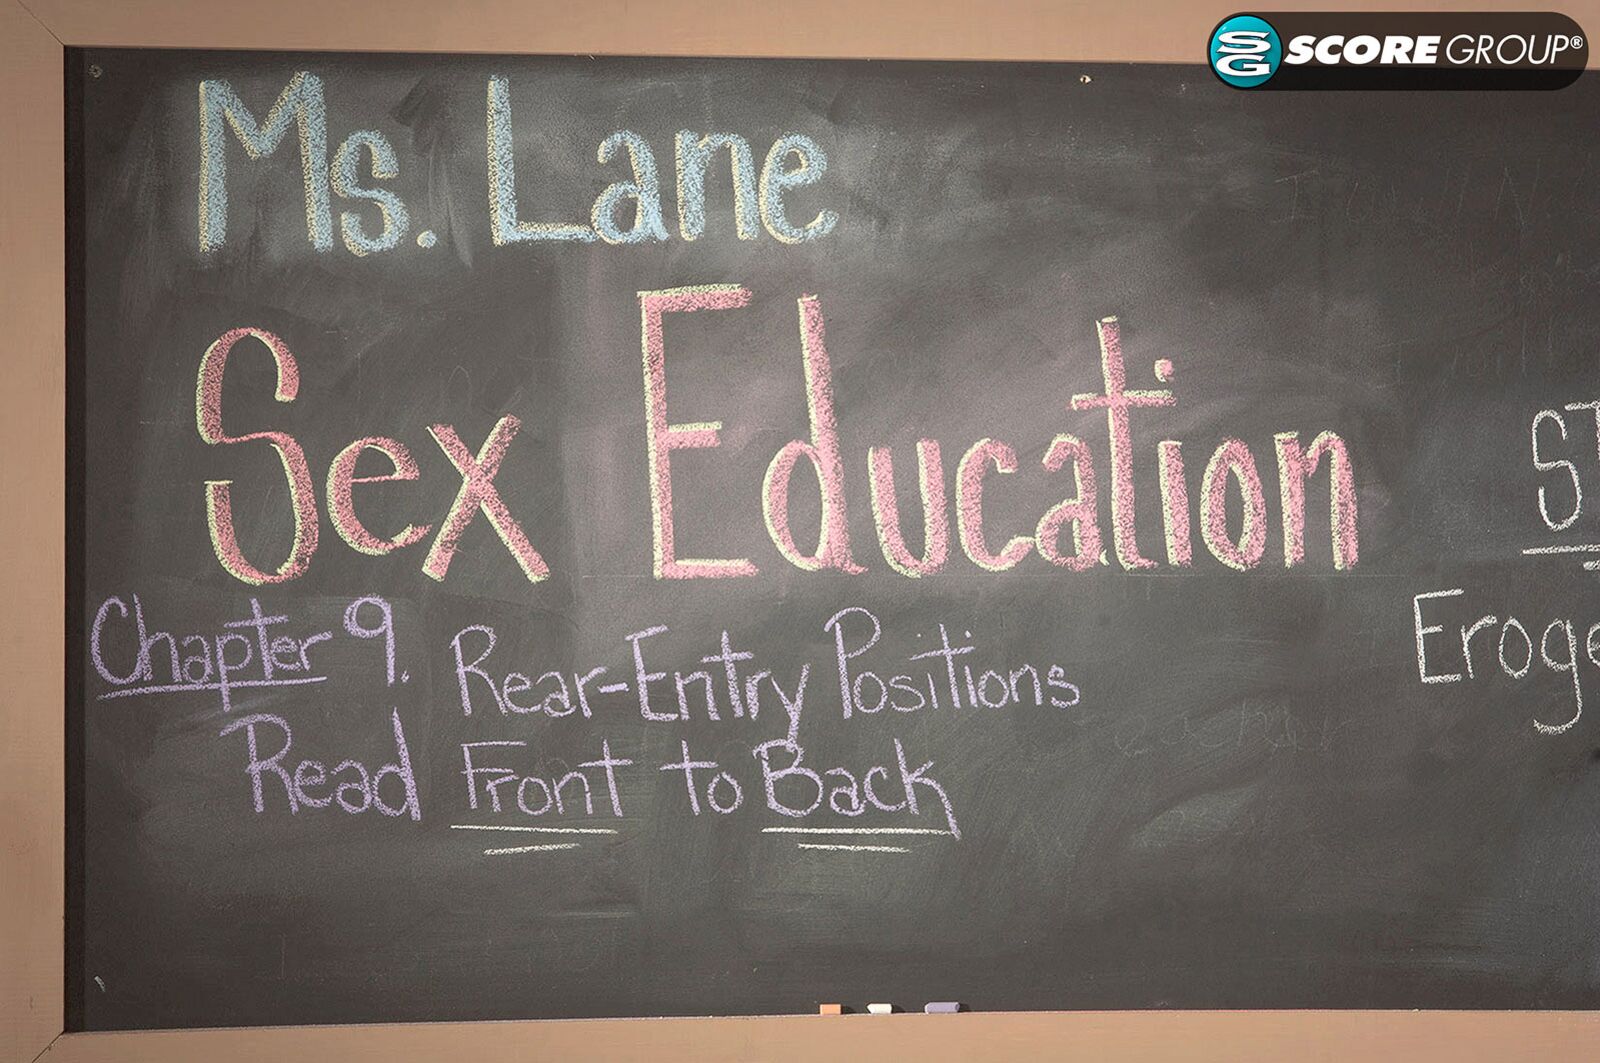 SG SCORE GROUP®
Ms. Lane
Sex Education
Chapter 9. Rear-Entry Positions
Read Front to Back